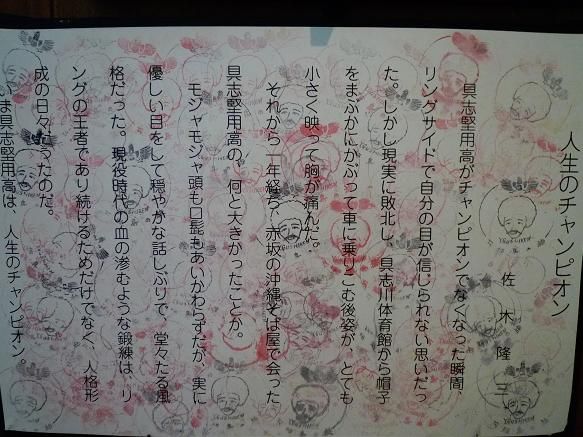 人生のチャンピオン
佐木隆三
具志堅用高がチャンピオンでなくなった瞬間、
リングサイドで自分の目が信じられない思いだっ
た。しかし現実に敗北し、具志川体育館から帽子
をまぶかにかぶって車に乗りこむ後姿が、とても
小さく映って胸が痛んだ。
それから一年経ち、赤坂の沖縄そば屋で会った
具志堅用高の、何と大きかったことか。
モジャモジャ頭も口髭もあいかわらずだが、実に
優しい目をして穏やかな話しぶりで、堂々たる風
格だった。現役時代の血の滲むような鍛練は、リ
ングの王者であり続けるためだけでなく、人格形
成の日々だったのだ。
いま具志堅用高は、人生のチャンピオン。